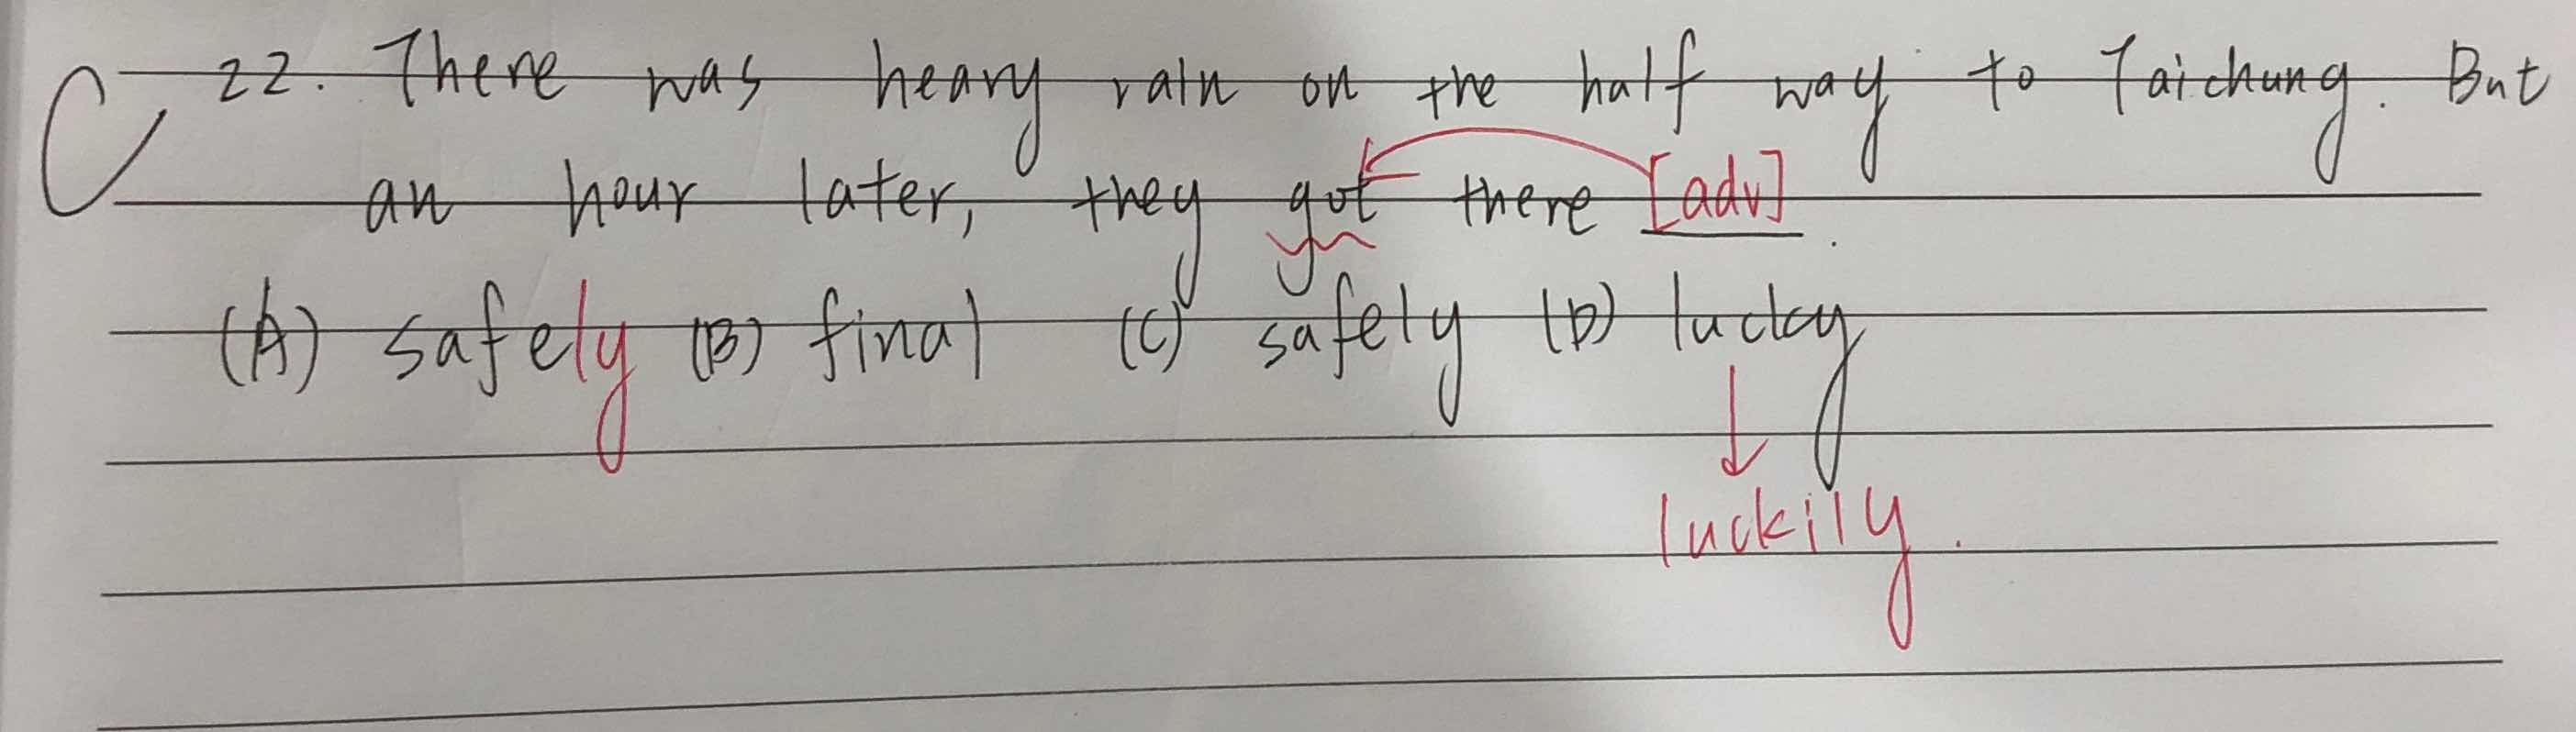 C 22. There was heavy rain on the half way to Taichung. But
an hour later, they got there [adv].
(A) safely (B) final (C) safely (D) lucky
luckily.